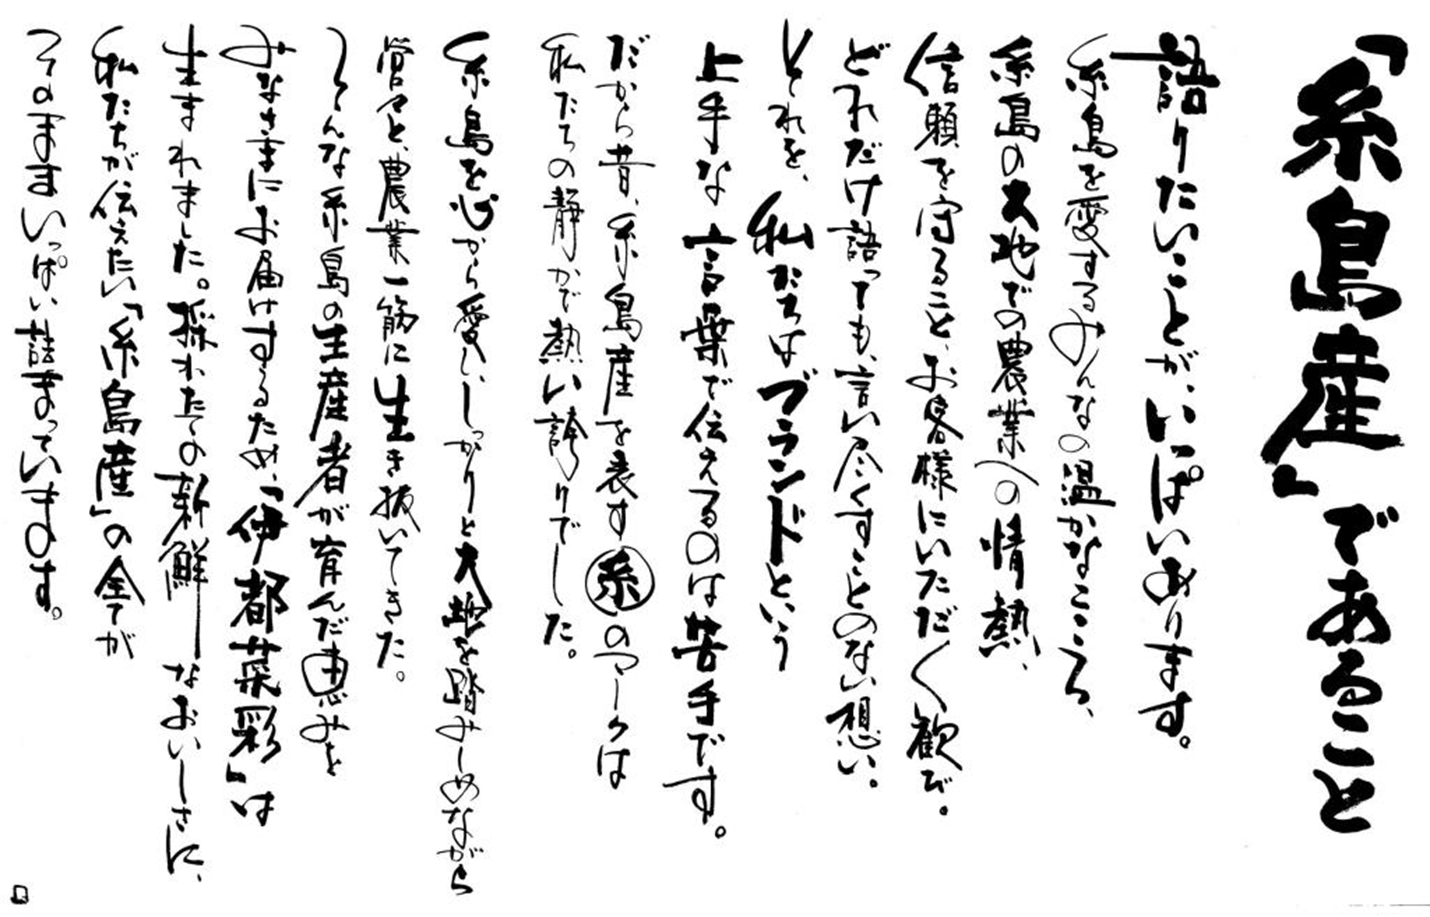 「糸島産」であること
語りたいことが、いっぱいあります。
糸島を愛するみんなの温かなこころ、
糸島の大地での農業への情熱、
信頼を守ること、お客様にいただく歓び。
どれだけ語っても、言い尽くすことのない想い。
それを、私たちはブランドという
上手な言葉で伝えるのは苦手です。
だから昔、糸島産を表す糸のマークは
私たちの静かで熱い誇りでした。
糸島を心から愛し、しっかりと大地を踏みしめながら
営々と、農業一筋に生き抜いてきた。
そんな糸島の生産者が育んだ恵みを
みなさまにお届けするため、「伊都菜彩」は
生まれました。採れたての新鮮なおいしさに、
私たちが伝えたい「糸島産」の全てが
そのままいっぱい詰まっています。